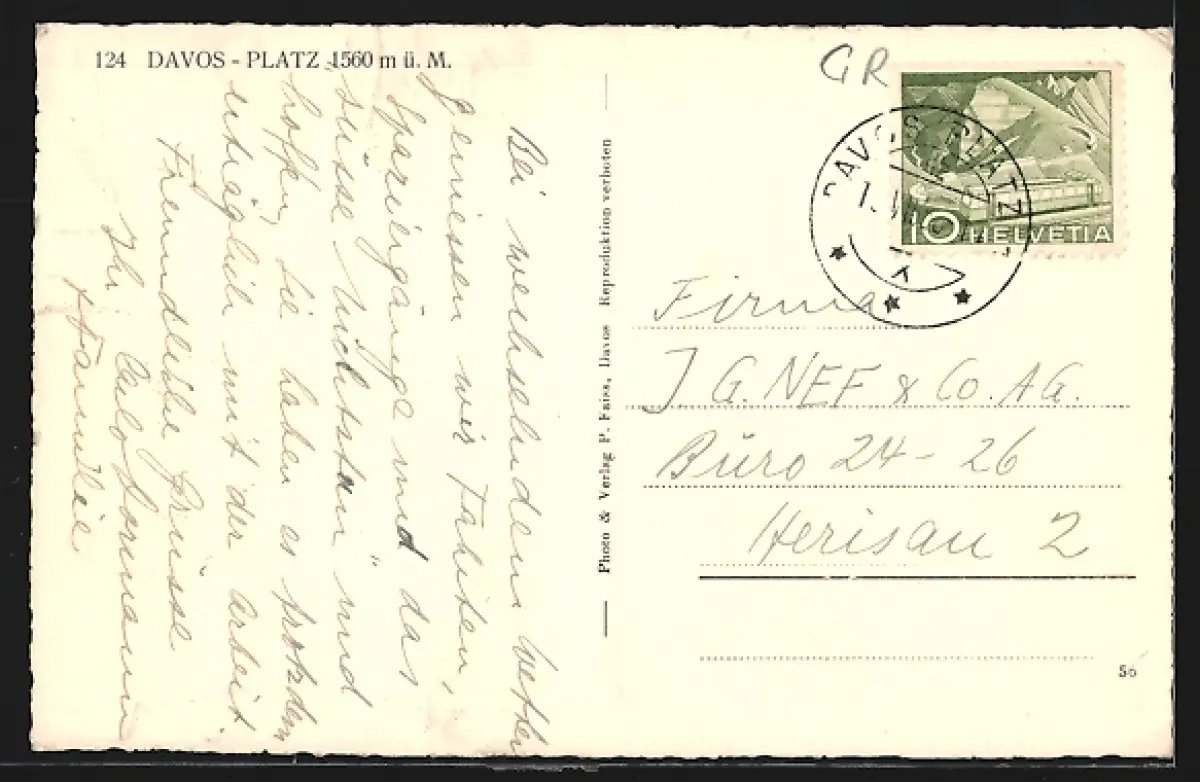 124 DAVOS - PLATZ 1560 m ü. M.
Bei wechselndem Wetter
geniessen wir Fahrten,
Spaziergänge und das
süsse Nichtstun und
hoffen Sie haben es trotzdem
erträglich mit der Arbeit.
Freundliche Grüsse
Ihr
Familie
Photo & Verlag P. Faiss, Davos Reproduktion verboten
GR
DAVOS PLATZ
10 HELVETIA
Firma
J G. NEF & Co. A.G.
Büro 24 - 26
Herisau 2
50